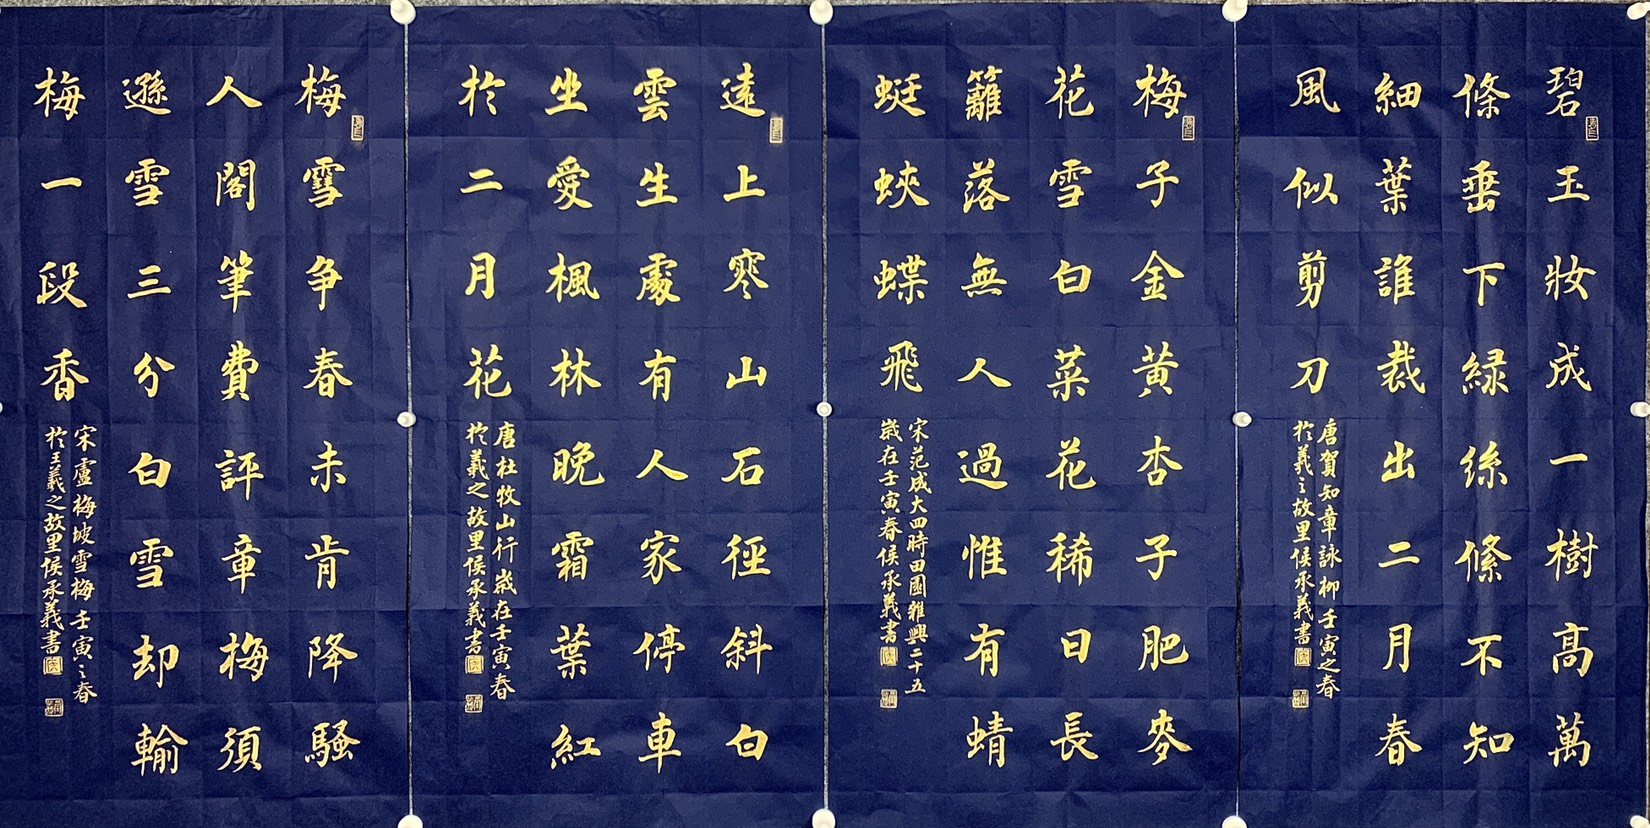 碧玉妝成一樹高萬
條垂下緑絲絛不知
細葉誰裁出二月春
風似剪刀
唐賀知章詠柳壬寅之春
於羲之故里侯承義書
梅子金黃杏子肥麥
花雪白菜花稀日長
籬落無人過惟有蜻
蜓蛺蝶飛
宋范成大四時田園雜興二十五
歲在壬寅春侯承義書
遠上寒山石徑斜白
雲生處有人家停車
坐愛楓林晚霜葉紅
於二月花
唐杜牧山行歲在壬寅春
於羲之故里侯承義書
梅雪爭春未肯降騷
人閣筆費評章梅須
遜雪三分白雪却輸
梅一段香
宋盧梅坡雪梅壬寅之春
於王羲之故里侯承義書